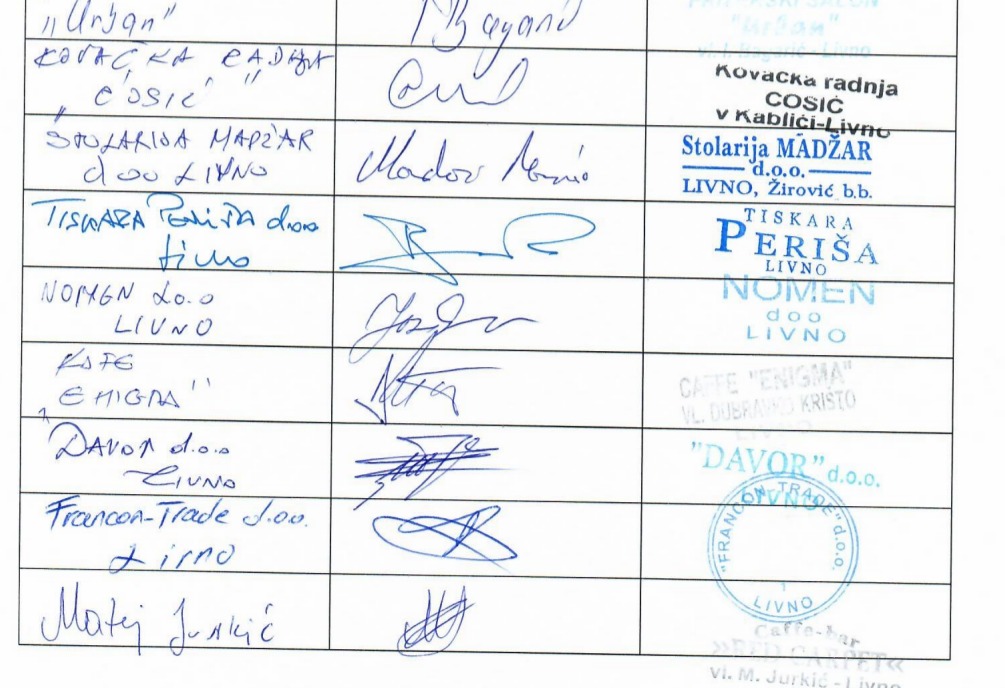 "Uržan"
Bagarić
"Uržan"
vl. I. Bagarić - Livno
KOVAČKA RADNJA
"ĆOSIĆ"
Kovačka radnja
ĆOSIĆ
v Kablići-Livno
STOLARIJA MADŽAR
doo LIVNO
Stolarija MADŽAR
d.o.o.
LIVNO, Žirović b.b.
TISKARA PERIŠA d.o.o
Livno
TISKARA
PERIŠA
LIVNO
NOMEN d.o.o
LIVNO
NOMEN
doo
LIVNO
CAFFE "ENIGMA"
VL. DUBRAVKO KRISTO
LIVNO
DAVOR d.o.o
LIVNO
"DAVOR" d.o.o.
LIVNO
Francon-Trade d.o.o.
Livno
"FRANCON TRADE" d.o.o.
1
LIVNO
Matej Jurkić
Caffe-bar
»RED CARPET«
vl. M. Jurkić - Livno